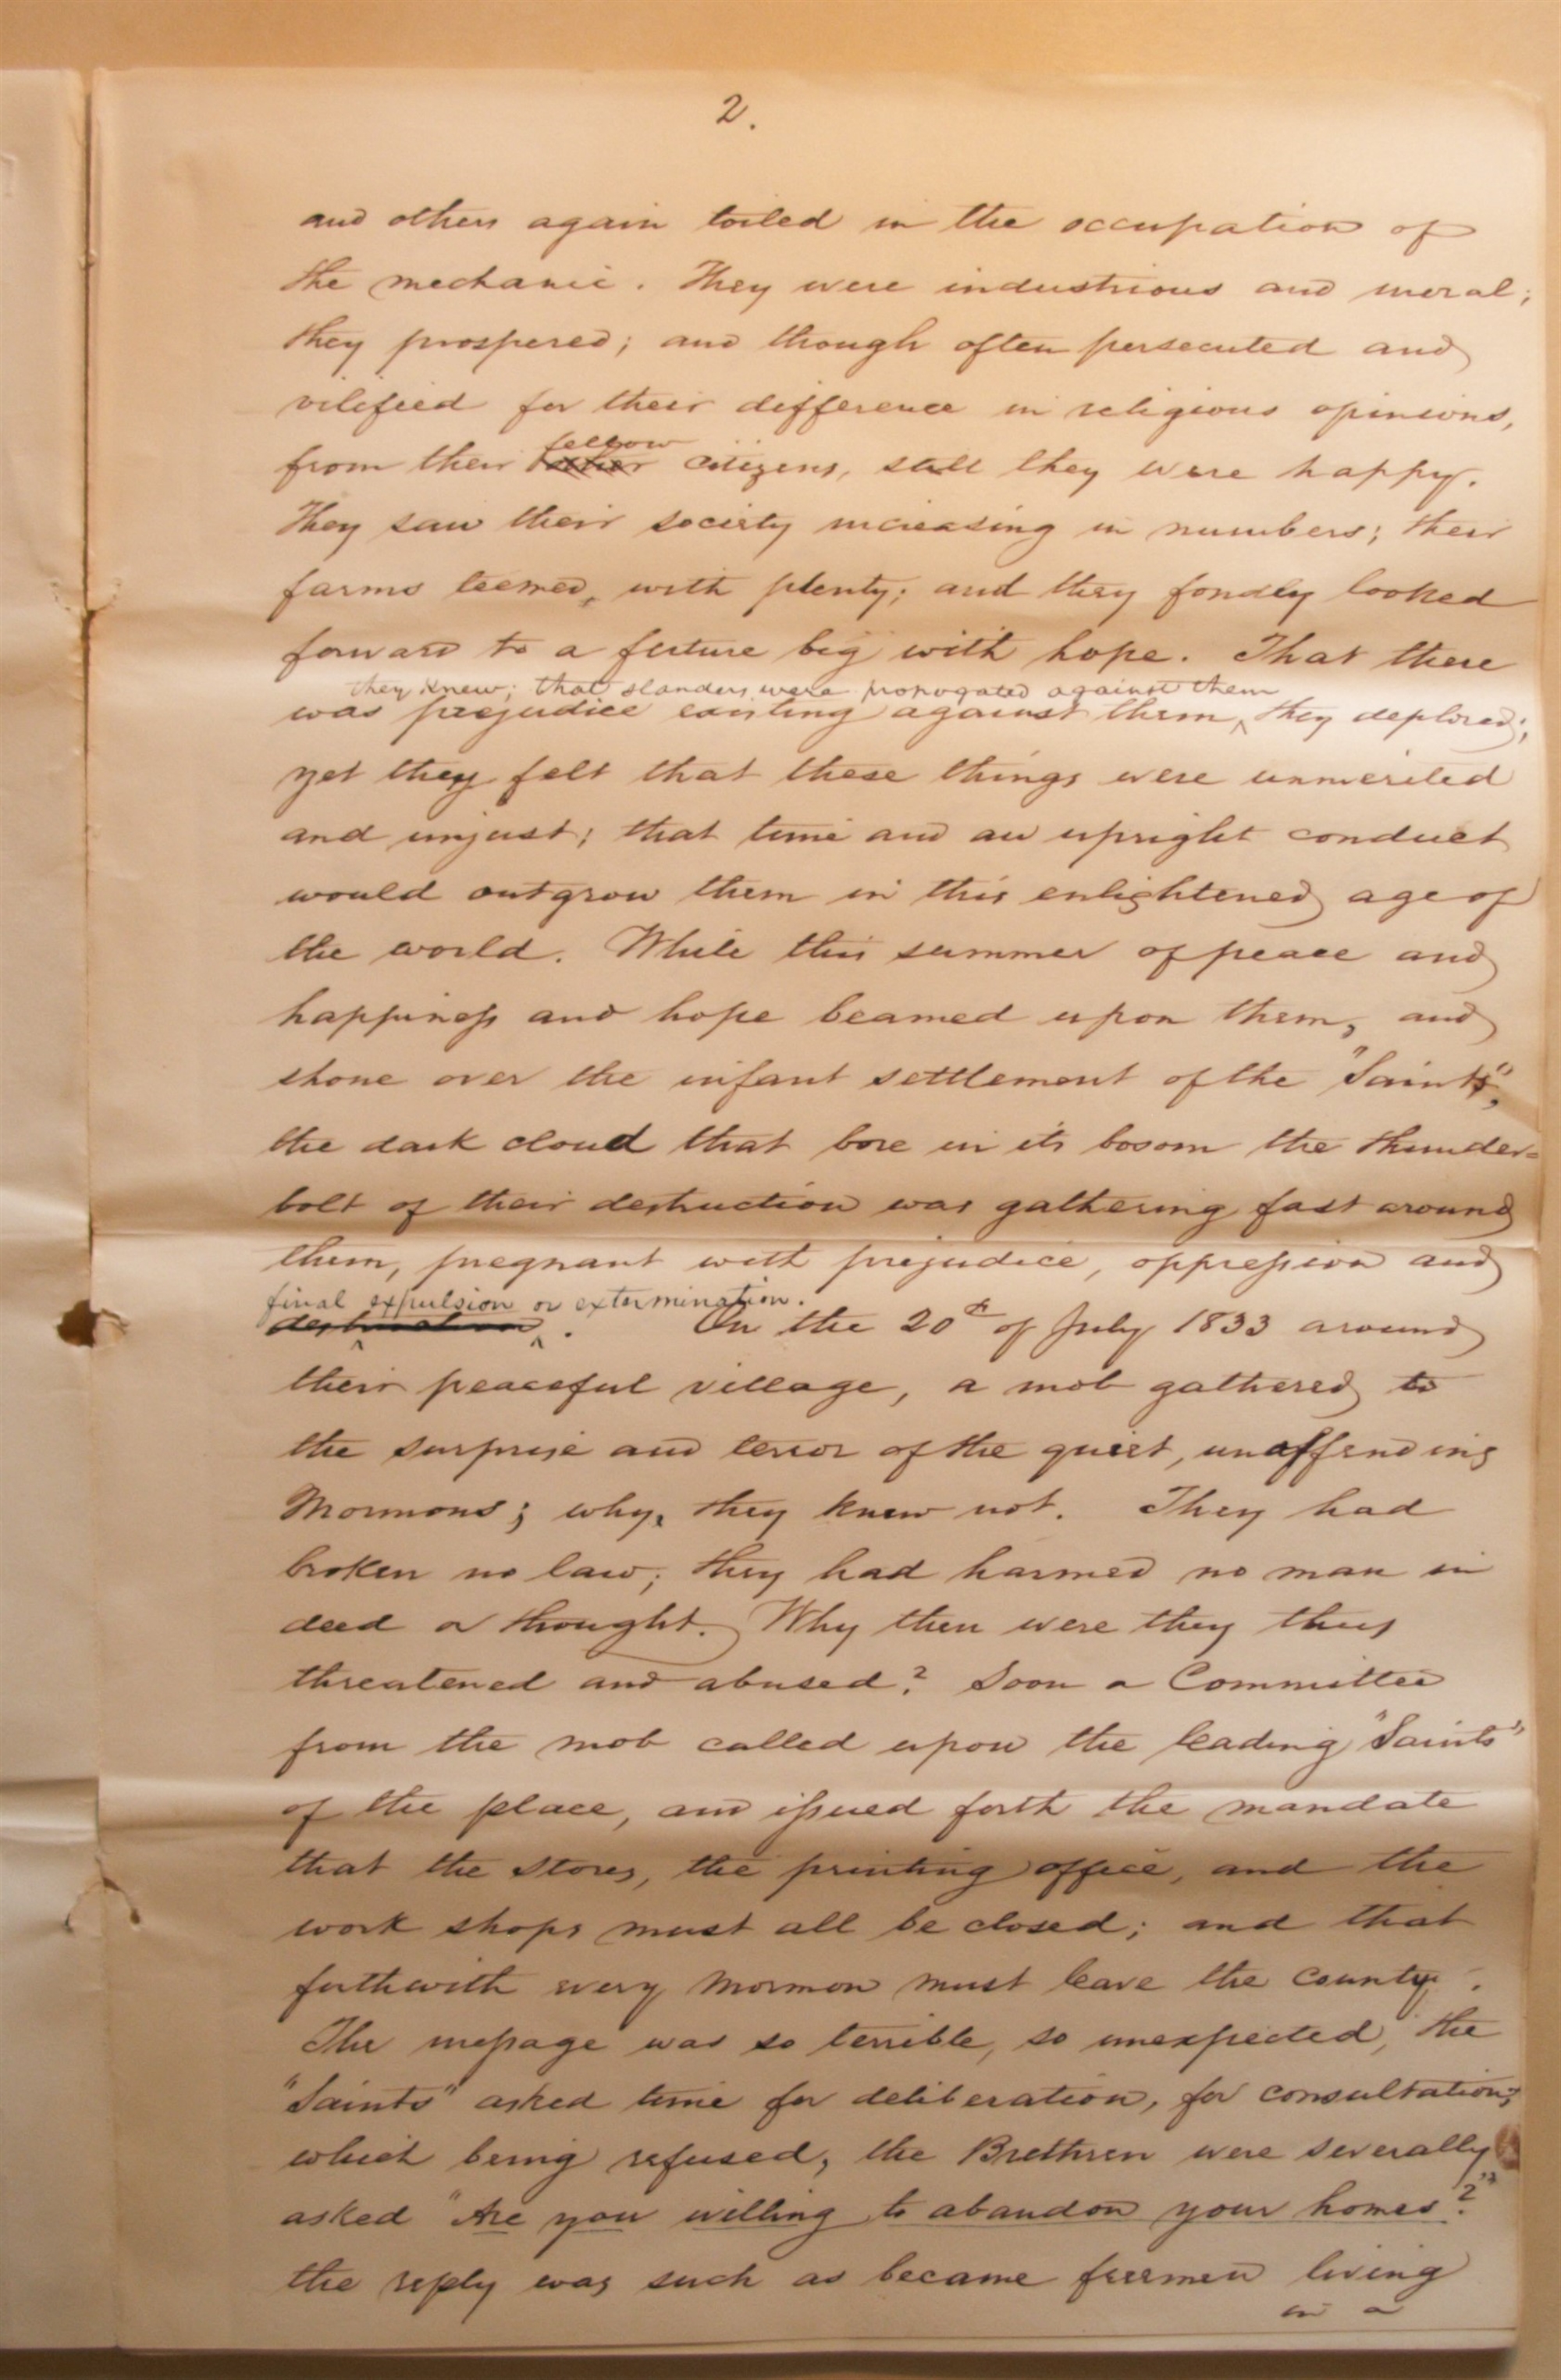 2.
and others again toiled in the occupation of
the mechanic. They were industrious and moral;
they prospered; and though often persecuted and
vilified for their difference in religious opinions,
fellow
from their other citizens, still they were happy.
They saw their society increasing in numbers; their
farms teemed, with plenty; and they fondly looked
forward to a future big with hope. That there
they knew; that slanders were propogated against them
was prejudice existing against them, they deplored;
yet they felt that these things were unmerited
and unjust; that time and an upright conduct
would outgrow them in this enlightened age of
the world. While this summer of peace and
happiness and hope beamed upon them, and
shone over the infant settlement of the "Saints",
the dark cloud that bore in its bosom the thunder=
bolt of their destruction was gathering fast around
them, pregnant with prejudice, oppression and
final expulsion or extermination.
destruction. On the 20th of July 1833 around
their peaceful village, a mob gathered to
the surprise and terror of the quiet, unoffending
Mormons; why, they knew not. They had
broken no law; they had harmed no man in
deed or thought. Why then were they thus
threatened and abused? Soon a Committee
from the mob called upon the leading "Saints"
of the place, and issued forth the mandate
that the stores, the printing office, and the
work shops must all be closed; and that
forthwith every Mormon must leave the county.
The message was so terrible, so unexpected, the
"Saints" asked time for deliberation, for consultation;
which being refused, the Brethren were severally
asked "Are you willing to abandon your homes?"
the reply was such as became freemen living
in a